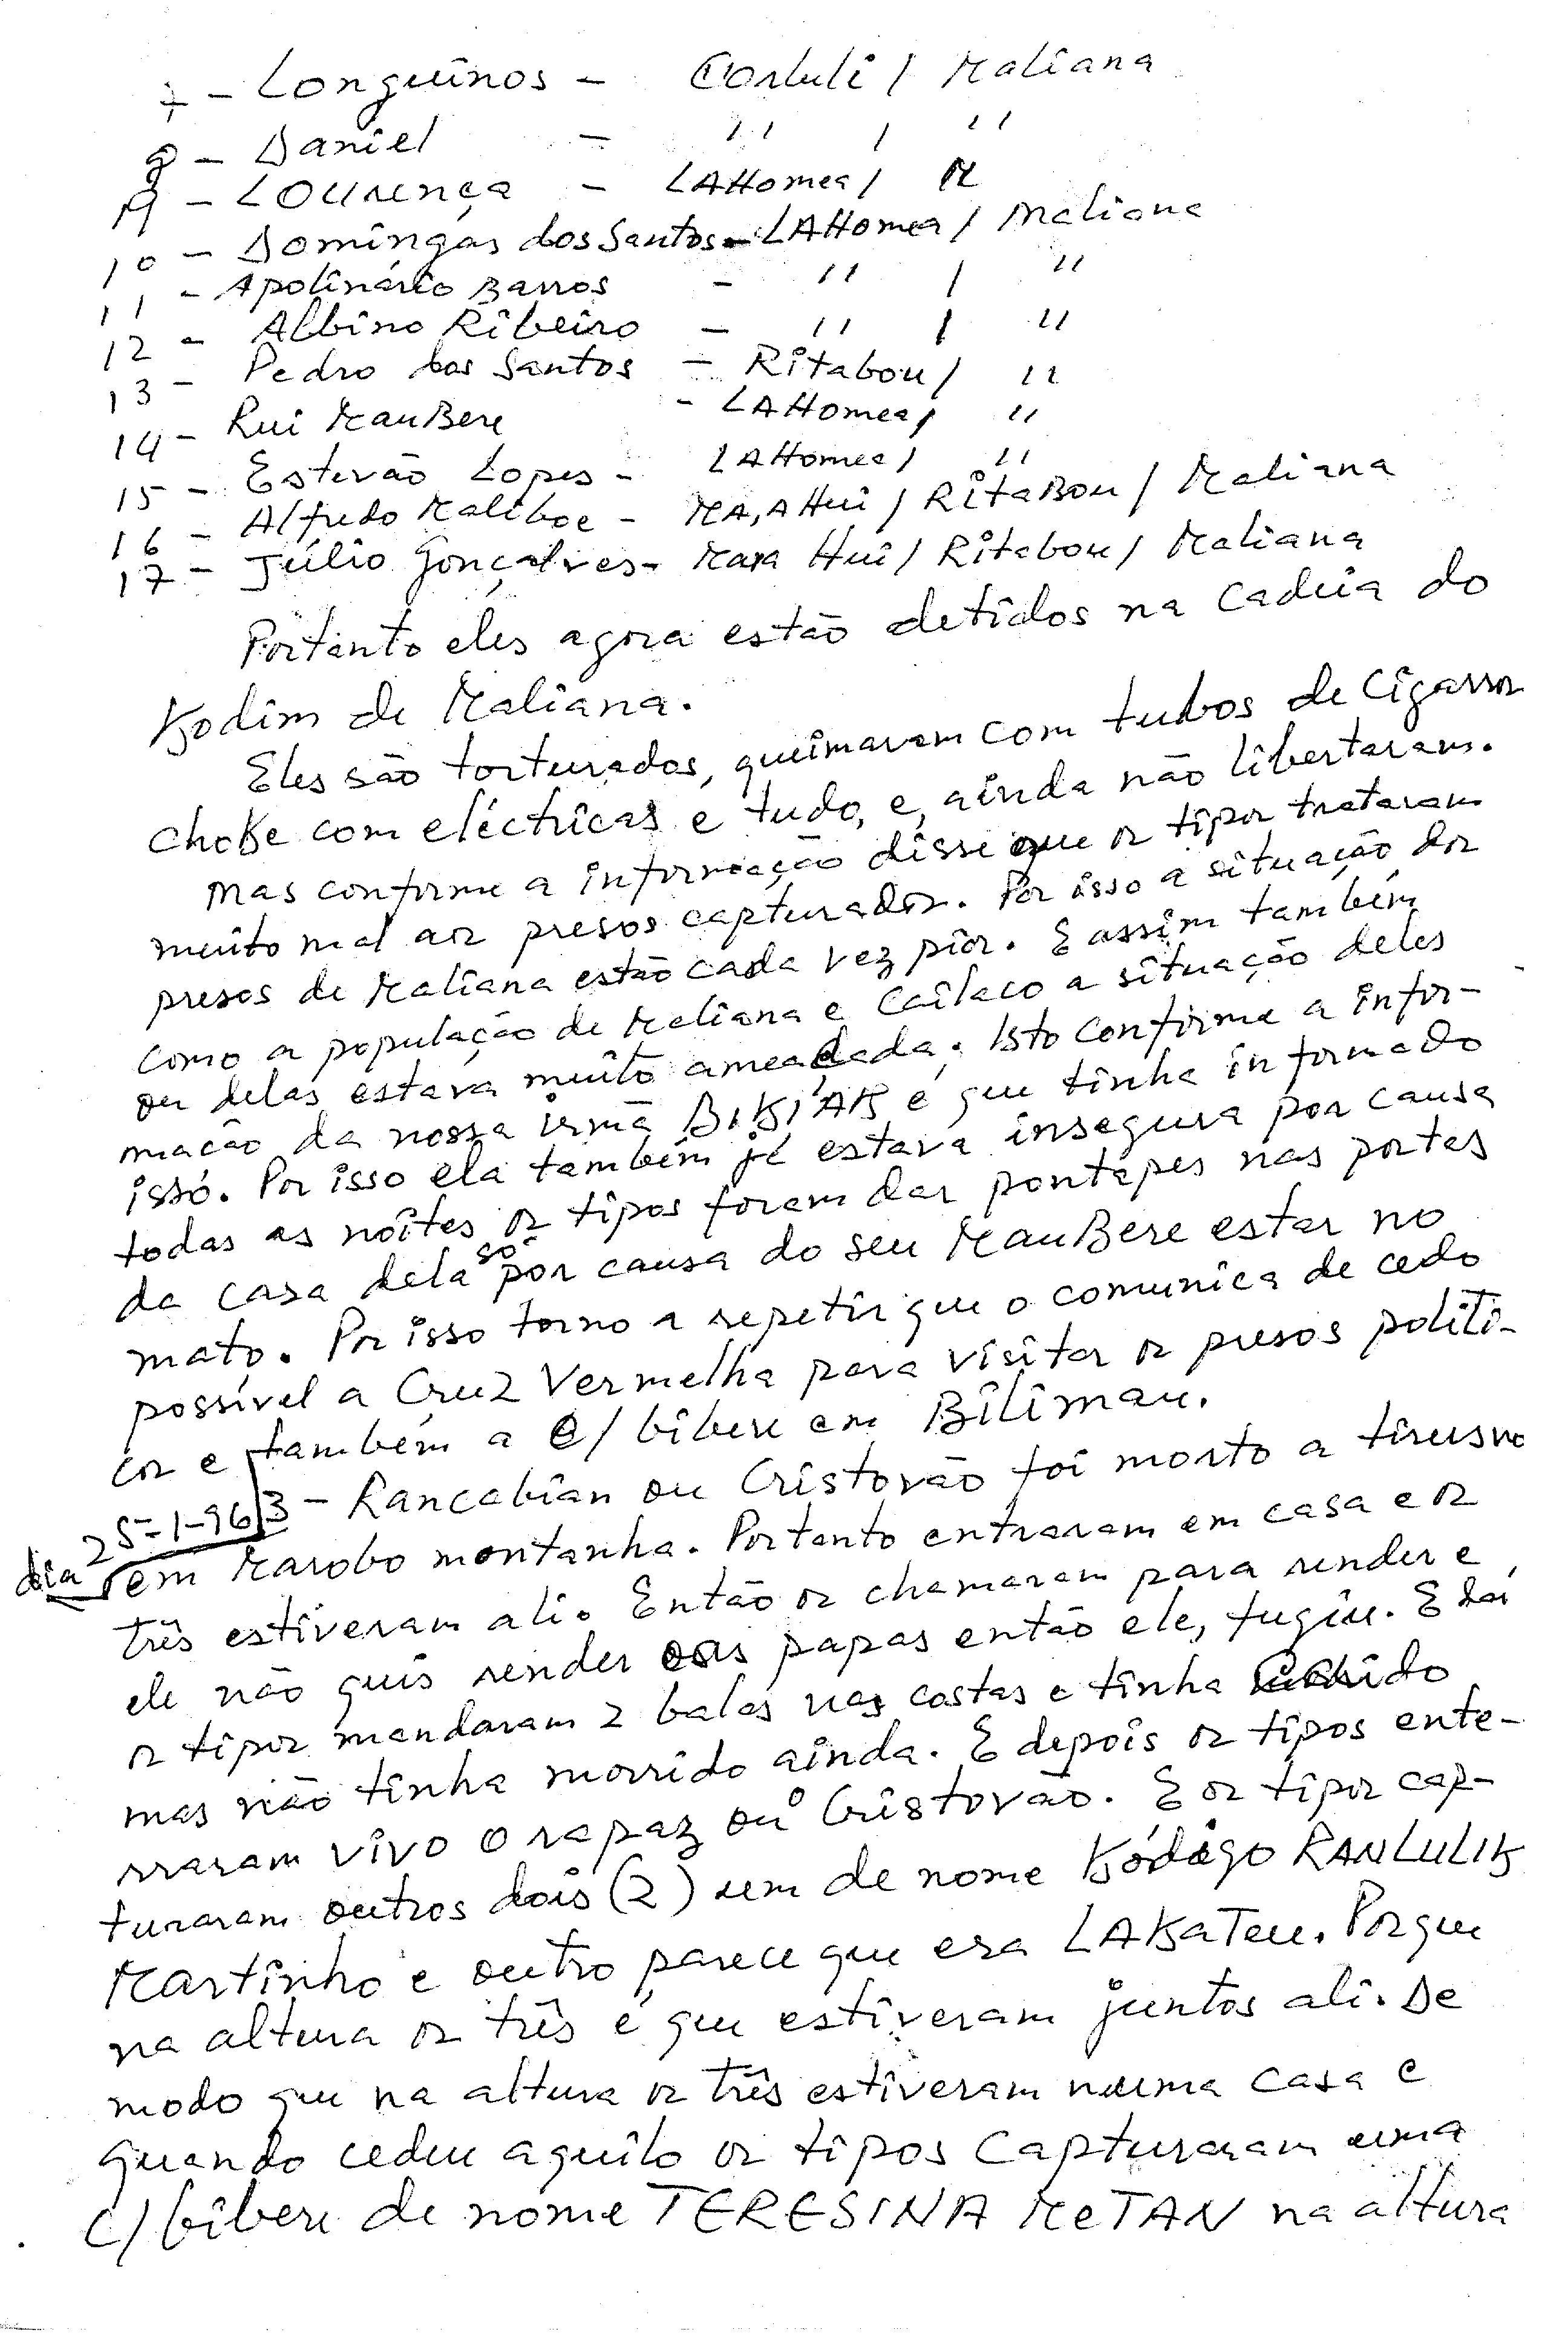 7 - Longuinos - Corluli / Maliana
8 - Daniel - " / "
9 - Lourença - LAHomea / M
10 - Domingas dos Santos - LAHomea / Maliana
11 - Apolinário Barros - " / "
12 - Albino Ribeiro - " / "
13 - Pedro dos Santos - Ritabou / "
14 - Rui MauBere - LAHomea / "
15 - Estevão Lopes - LAHomea / "
16 - Alfredo Maliboe - MA,AHui / RitaBou / Maliana
17 - Júlio Gonçalves - Maa Hui / Ritabou / Maliana
Portanto eles agora estão detidos na cadeia do
Kodim de Maliana.
Eles são torturados, queimaram com tubos de cigarros
choke com eléctricas e tudo, e, ainda não libertaram.
Mas conforme a informação disse que os tipos trataram
muito mal aos presos capturados. Por isso a situação dos
presos de Maliana estão cada vez pior. E assim também
como a população de Maliana e Cailaco a situação deles
ou delas estava muito ameaçada. Isto conforme a infor-
mação da nossa irmã BIKI'AK é que tinha informado
isso. Por isso ela também já estava insegura por causa
todas as noites os tipos foram dar pontapés nas portas
da casa dela só por causa do seu MauBere estar no
mato. Por isso torno a repetir que o comunica de cedo
possível a Cruz Vermelha para visitar os presos políti-
cos e também a C/bibere em Bilimau.
dia 25-1-96 3 - Rancabian ou Cristovão foi morto a tirus no
em Marobo montanha. Portanto entraram em casa e os
três estiveram ali. Então os chamaram para render e
ele não quis render aos papas então ele, fugiu. E daí
os tipos mandaram 2 balas nas costas e tinha caído
mas não tinha morrido ainda. E depois os tipos ente-
rraram vivo o rapaz ou Cristovão. E os tipos cap-
turaram outros dois (2) um de nome Kódigo RANLULIK
Martinho e outro parece que era LAKaTeu. Porque
na altura os três é que estiveram juntos ali. De
modo que na altura os três estiveram numa casa e
quando cedeu aquilo os tipos capturaram uma
C/bibere de nome TERESINA MeTAN na altura